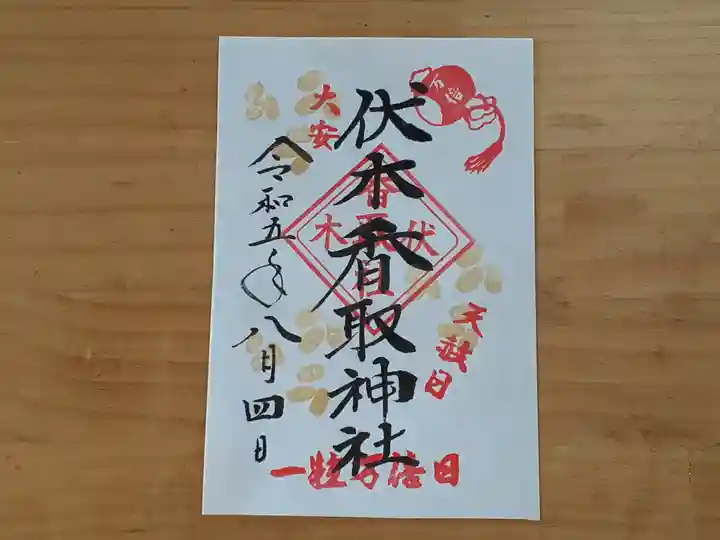 万倍
伏木香取神社
大安
令和五年八月四日
天赦日
一粒万倍日